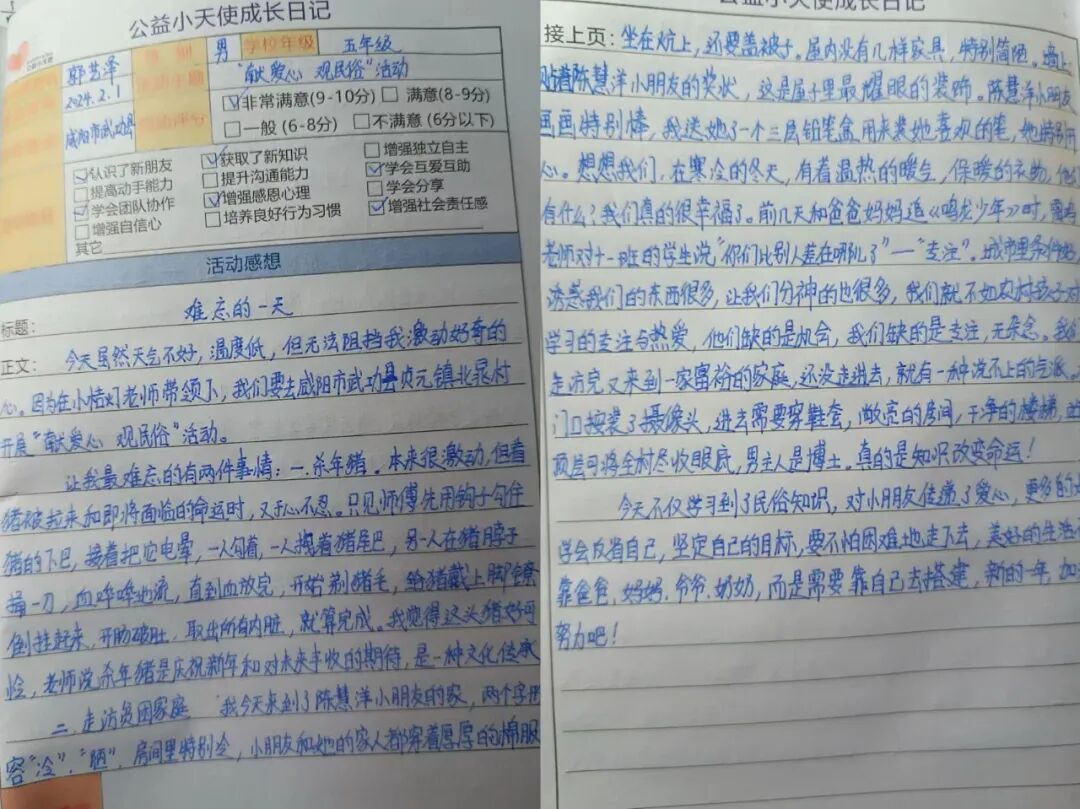 公益小天使成长日记
郭艺泽
性别
男
学校年级
五年级
2024.2.1
活动主题
"献爱心 观民俗"活动
咸阳市武功县
活动评分
☑非常满意(9-10分) □ 满意(8-9分)
□一般 (6-8分) □不满意 (6分以下)
☑认识了新朋友 ☑获取了新知识 □增强独立自主
□提高动手能力 □提升沟通能力 ☑学会互爱互助
☑学会团队协作 ☑增强感恩心理 □学会分享
□增强自信心 □培养良好行为习惯 ☑增强社会责任感
其它
活动感想
标题: 难忘的一天
正文: 今天虽然天气不好,温度低,但无法阻挡我激动好奇的
心。因为在小桔灯老师带领下,我们要去咸阳市武功县贞元镇北泉村
开展"献爱心 观民俗"活动。
让我最难忘的有两件事情:一.杀年猪。本来很激动,但看
猪被拉来和即将面临的命运时,又于心不忍。只见师傅先用钩子勾住
猪的下巴,接着把它电晕,一人勾着,一人拽着猪尾巴,另一人在猪脖子
捅一刀,血哗哗地流,直到血放完,开始剃猪毛,给猪戴上脚镣
倒挂起来,开肠破肚,取出所有内脏,就算完成。我觉得这头猪好可
怜,老师说杀年猪是庆祝新年和对未来丰收的期待,是一种文化传承
二.走访贫困家庭 我今天来到了陈慧洋小朋友的家,两个字形
容"冷"、"陋",房间里特别冷,小朋友和她的家人都穿着厚厚的棉服
公益小天使成长日记
接上页: 坐在炕上,还要盖被子。屋内没有几样家具,特别简陋。墙上
贴着陈慧洋小朋友的奖状,这是屋子里最耀眼的装饰。陈慧洋小朋友
画画特别棒,我送她了一个三层铅笔盒用来装她喜欢的笔,她特别开
心。想想我们,在寒冷的冬天,有着温热的暖气,保暖的衣物,他们
有什么?我们真的很幸福了。前几天和爸爸妈妈追《鸣龙少年》时,雷
老师对十一班的学生说"你们比别人差在哪儿了"—"专注"。城市里条件好,
诱惑我们的东西很多,让我们分神的也很多,我们就不如农村孩子对
学习的专注与热爱,他们缺的是机会,我们缺的是专注,无杂念。我们
走访完又来到一家富裕的家庭,还没走进去,就有一种说不上的气派。
门口按装了摄像头,进去需要穿鞋套,敞亮的房间,干净的楼梯,
顶层可将全村尽收眼底,男主人是博士。真的是知识改变命运!
今天不仅学习到了民俗知识,对小朋友传递了爱心,更多的
学会反省自己,坚定自己的目标,要不怕困难地走下去,美好的生活
靠爸爸、妈妈、爷爷、奶奶,而是需要靠自己去搭建,新的一年,加
努力吧!